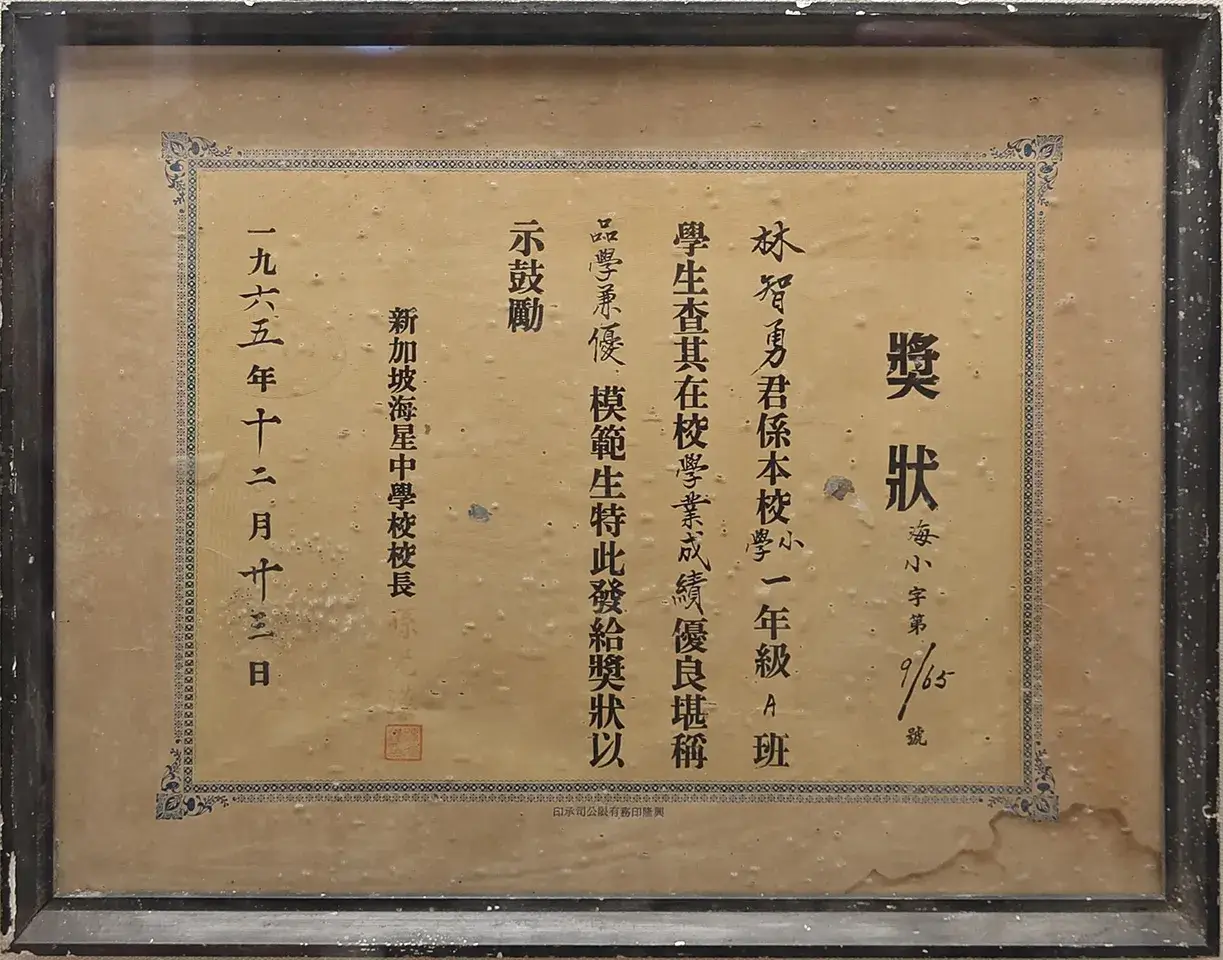 獎狀
海小字第9/65號
林智勇君係本校小學一年級A班
學生查其在校學業成績優良堪稱
品學兼優模範生特此發給獎狀以
示鼓勵
新加坡海星中學校校長
一九六五年十二月廿三日
興隆印務有限公司承印